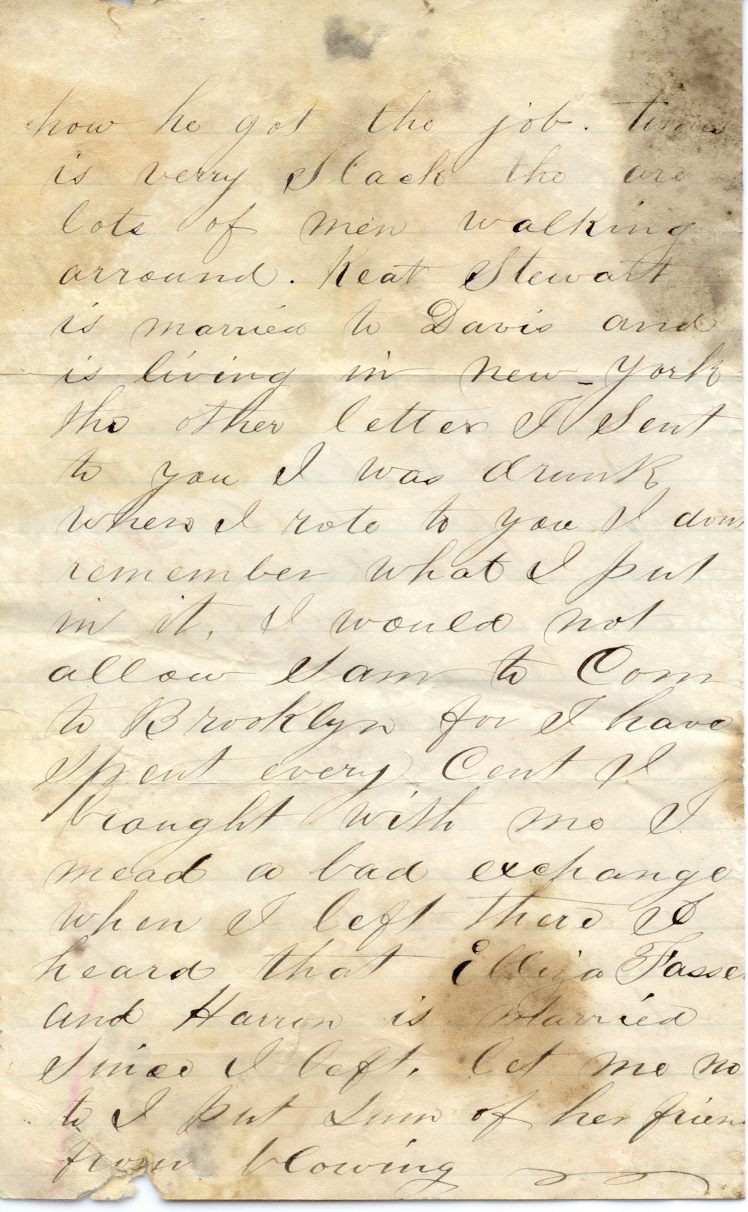 how he got the job. times
is verry Slack the are
lots of men walking
arround. Keat Stewart
is married to Davis and
is living in new-York
the other letter I Sent
to you I was drunk
when I rote to you I dont
remember what I put
in it. I would not
allow Sam to Com
to Brooklyn for I have
Spent every Cent I
braught with me I
mead a bad exchange
when I left there I
heard that Elliza
and Harron is Married
Since I left. let me no
to I put Sum of her frien
from blowing